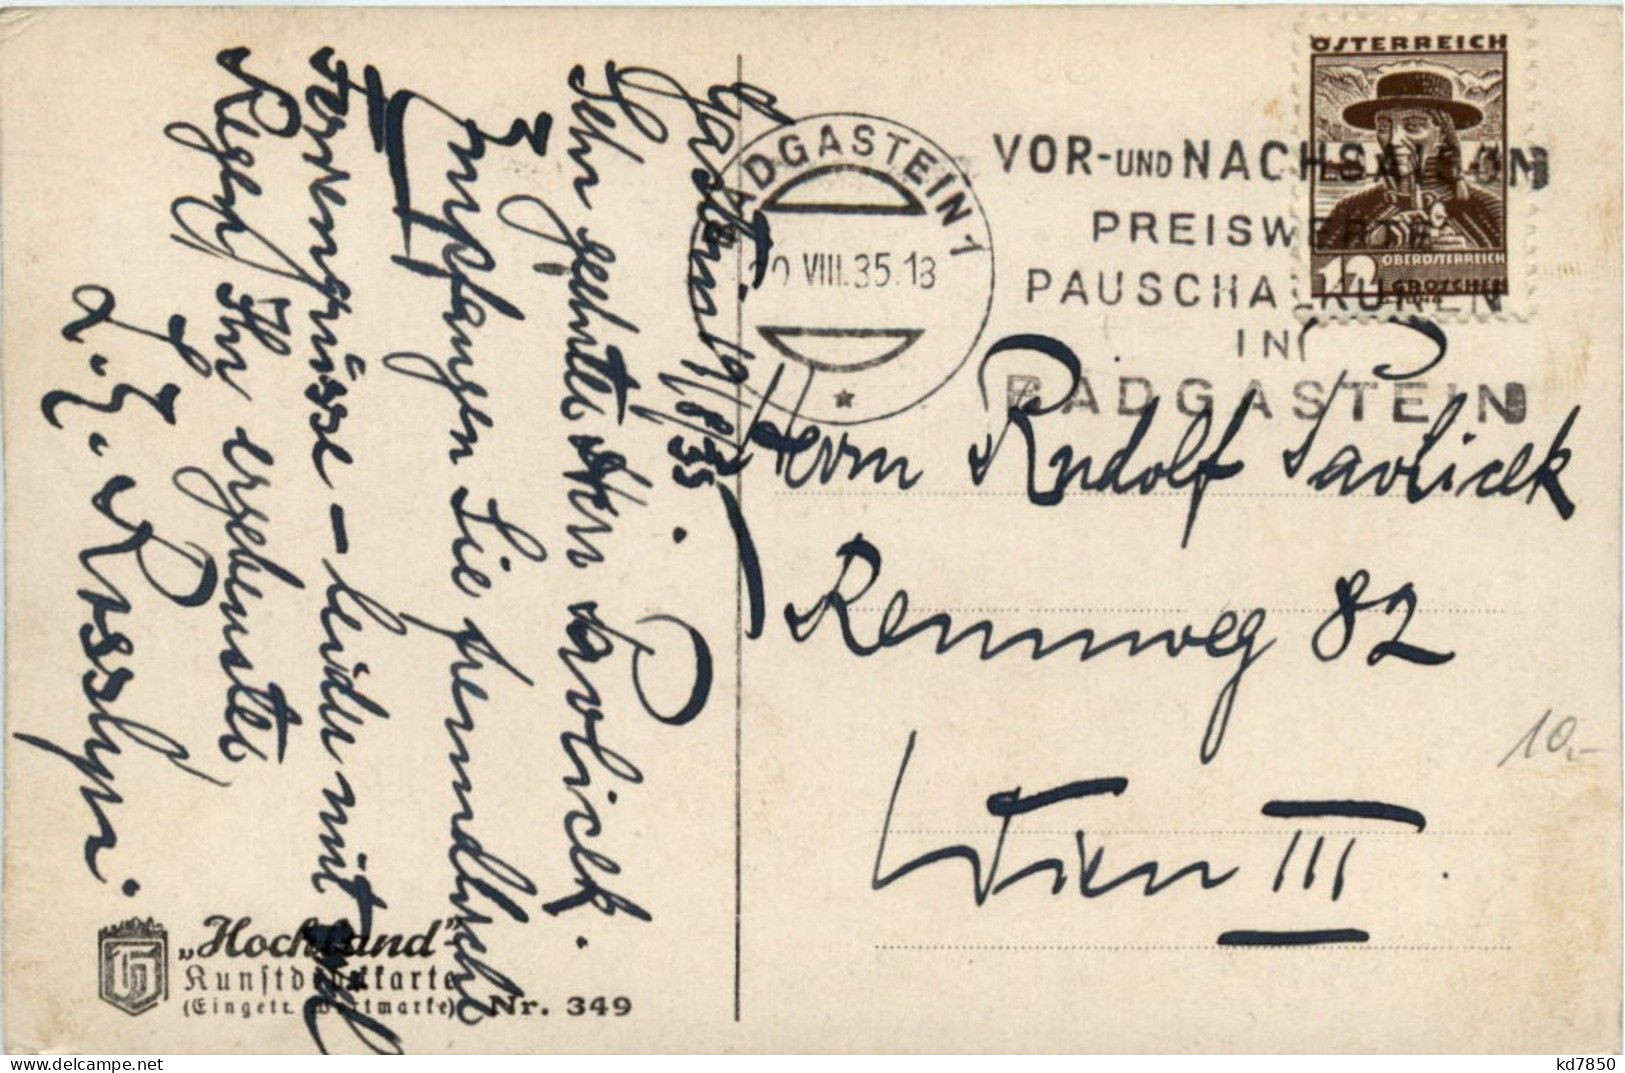 Gastein 19/8/35.
Sehr geehrter Herr Pavlicek.
Empfangen Sie freundlichst
Fereengrüsse – leider mit viel
Regen Ihr ergebenster
Rosslyn.
BADGASTEIN 1
VIII.35.18
VOR-UND NACHSAISON
PREISWERTE
PAUSCHALKUREN
IN
BADGASTEIN
ÖSTERREICH
OBERÖSTERREICH
12 GROSCHEN
Herrn Rudolf Pavlicek
Rennweg 82
Wien III.
10.–
„Hochland"-
Kunstdruckkarte
(Eingetr. Wortmarke) Nr. 349
kd7850